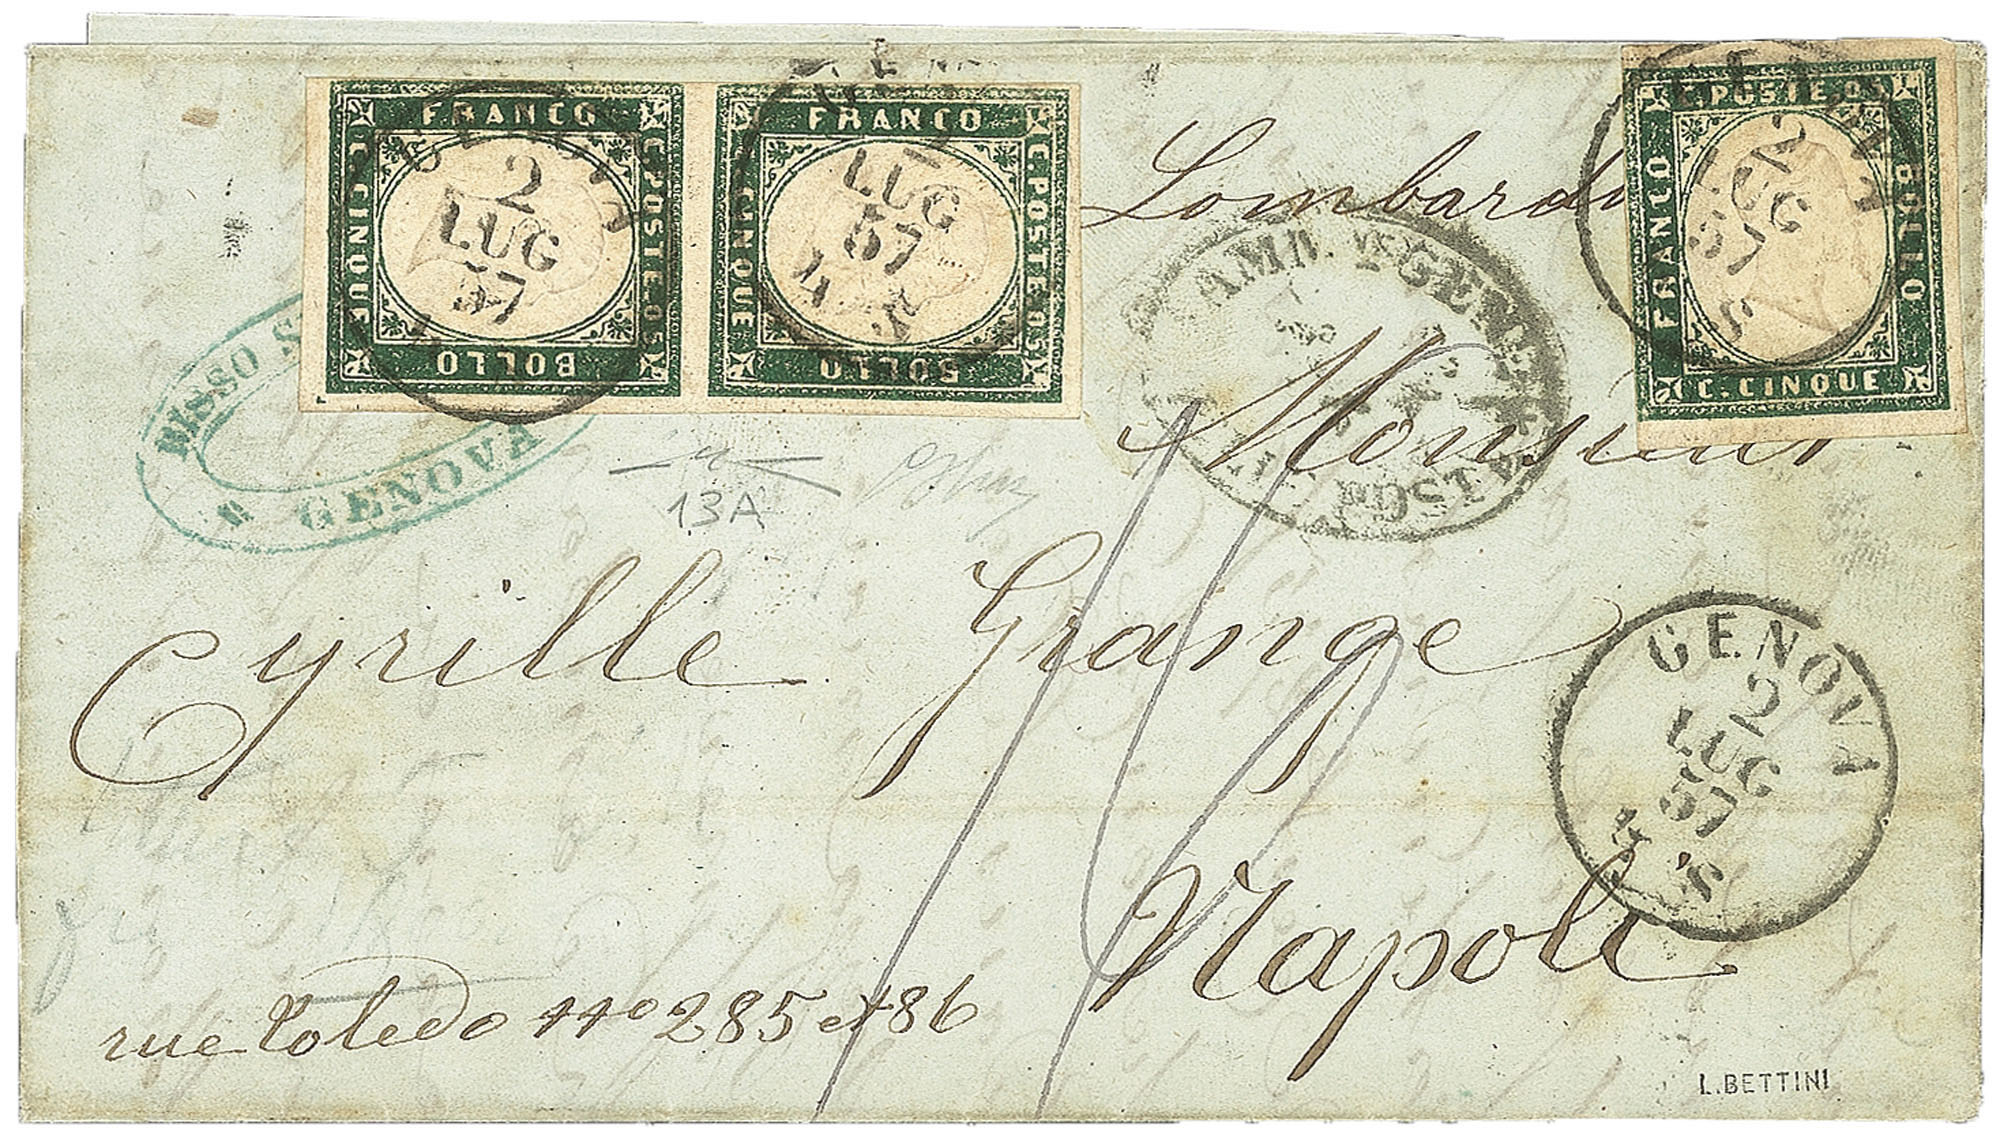 FRANCO
C. POSTE. 05
C. CINQUE
BOLLO
2
LUG
57
FRANCO
C. POSTE. 05
C. CINQUE
BOLLO
LUG
57
C. POSTE. 05
FRANCO
BOLLO
C. CINQUE
GENOVA
2
LUG
57
Lombardo
AMM. GEN
Monsieur
BISSO
GENOVA
13A
Cyrille Grange
GENOVA
2
LUG
57
4 S.
Napoli
rue Toledo no 285 et 86
L.BETTINI